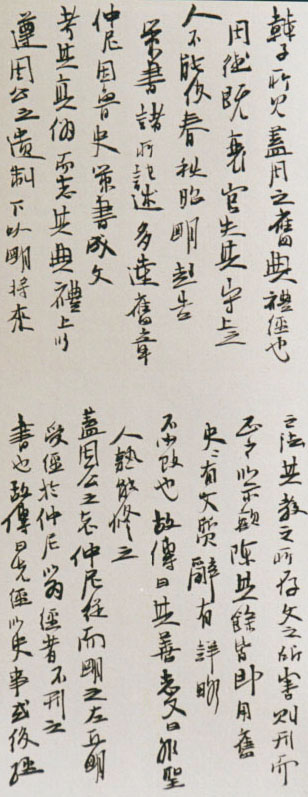 韓子所見蓋周之舊典禮經也
周德既衰官失其守上之
人不能使春秋昭明赴告
策書諸所記述多違舊章
仲尼因魯史策書成文
考其真偽而志其典禮上以
遵周公之遺制下以明將來
之法其教之所存文之所害則刊而
正之以示勸陳其餘皆即用舊
史々有文質辭有詳略
不必改也故傳曰其善志又曰非聖
人孰能修之
蓋周公之志仲尼從而明之左丘明
受經於仲尼以為經者不刊之
書也故傳曰先經以史事或後經